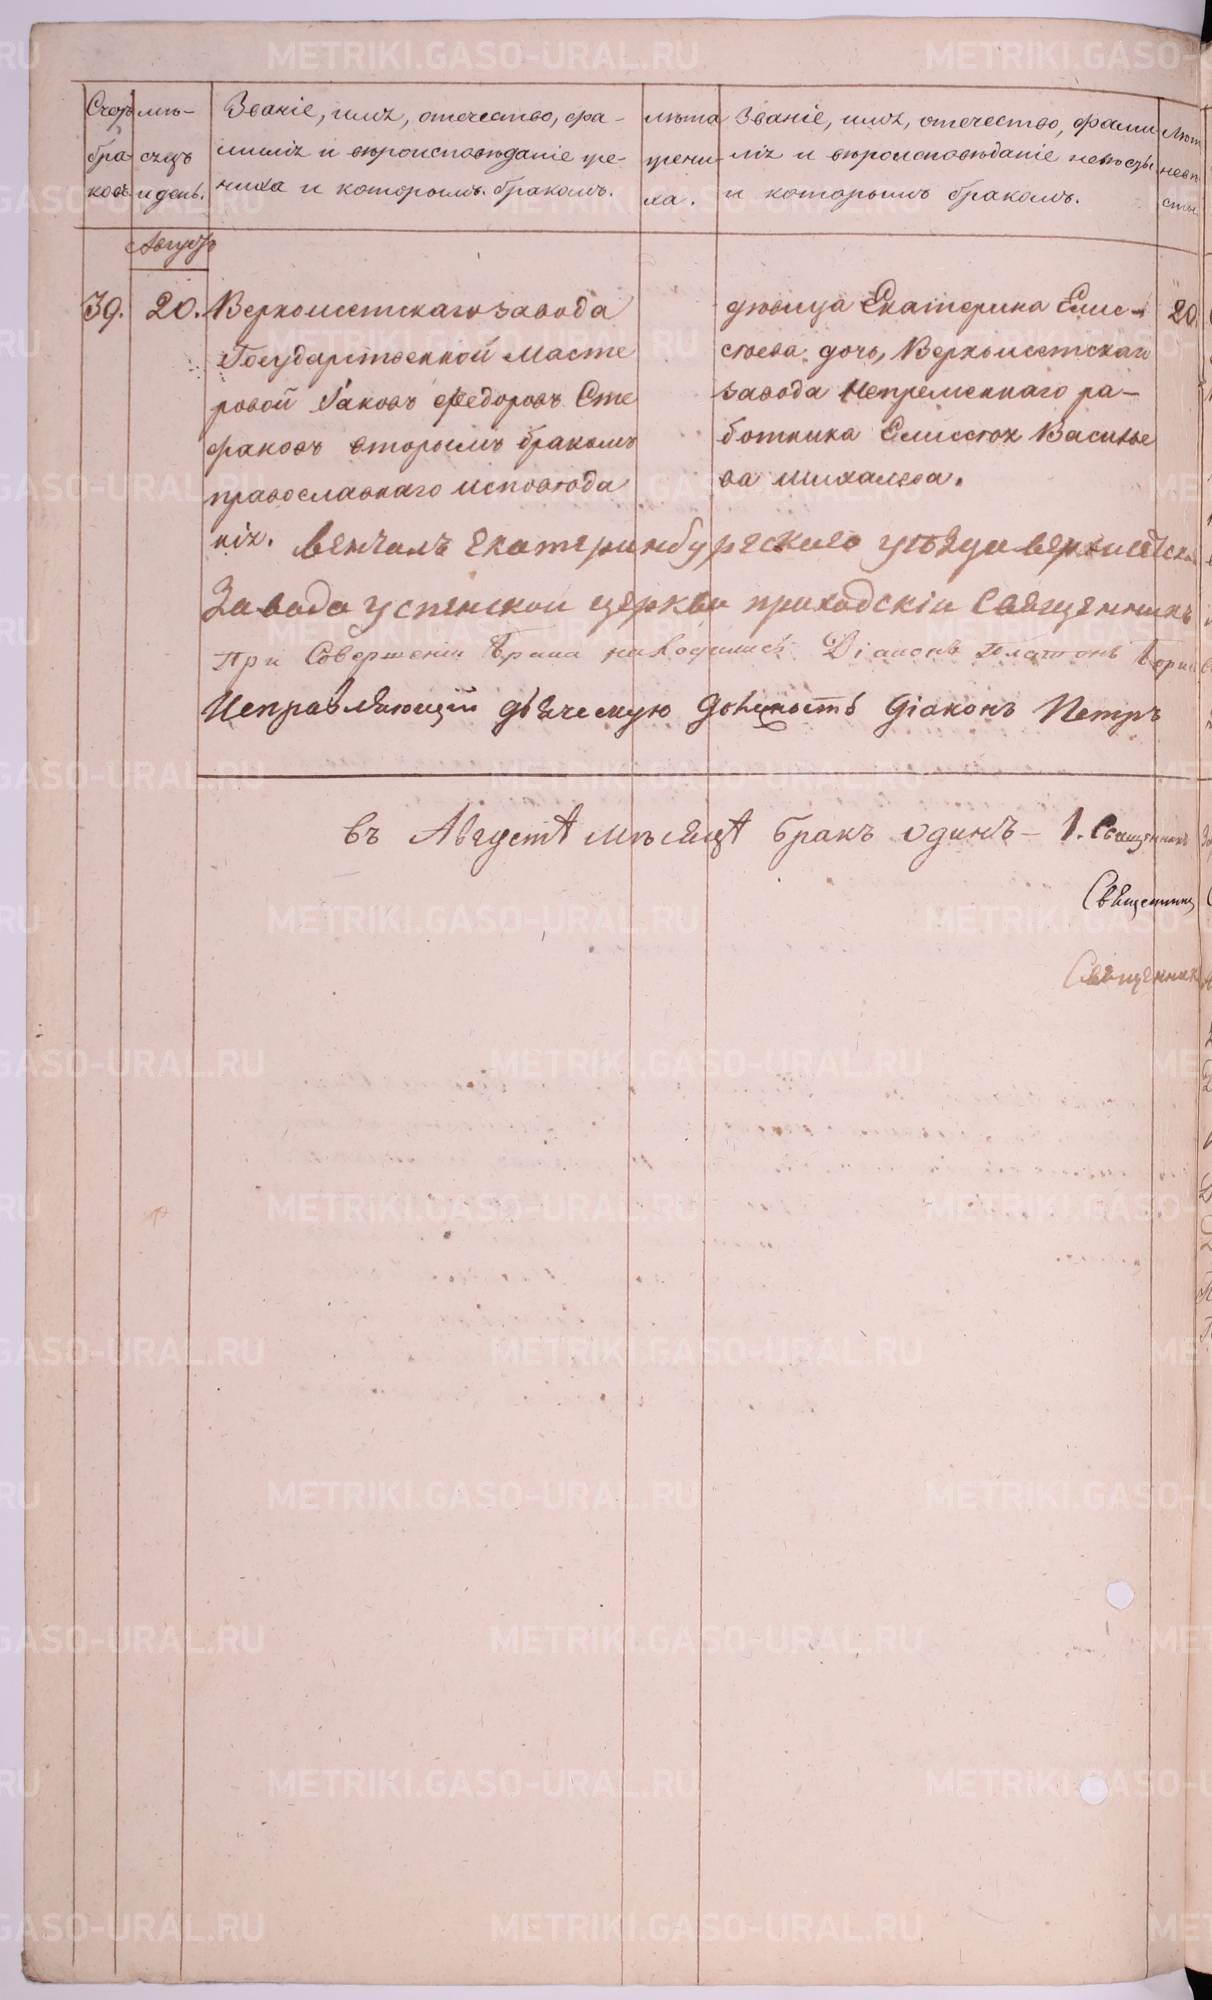 Счетъ браковъ.
мѣсяцъ и день.
Званіе, имя, отечество, фамилія и вѣроисповѣданіе жениха и которымъ бракомъ.
лѣта жениха.
Званіе, имя, отечество, фамилія и вѣроисповѣданіе невѣсты и которымъ бракомъ.
Лѣта невѣсты
Августъ
39. 20.
Верхисетскаго завода
Государственной масте
ровой Іаковъ Федоровъ Сте
фановъ вторымъ бракомъ
православнаго исповѣда
нія.
дѣвица Екатерина Елис-
сѣева дочь, Верхъисетскаго
завода Непремѣннаго ра-
ботника Елиссѣя Василье
ва Михалева.
20.
Венчалъ Екатеринбурескаго уѣзда верхисетска
Завода успенской церкви приходскій Священникъ
При Совершеніи Брака находились Діаконъ Платонъ
Исправляющій дьяческую должность діаконъ Петръ
въ Августѣ мѣсяцѣ бракъ одинъ – 1. Священникъ
Священникъ
Священник
METRIKI.GASO-URAL.RU